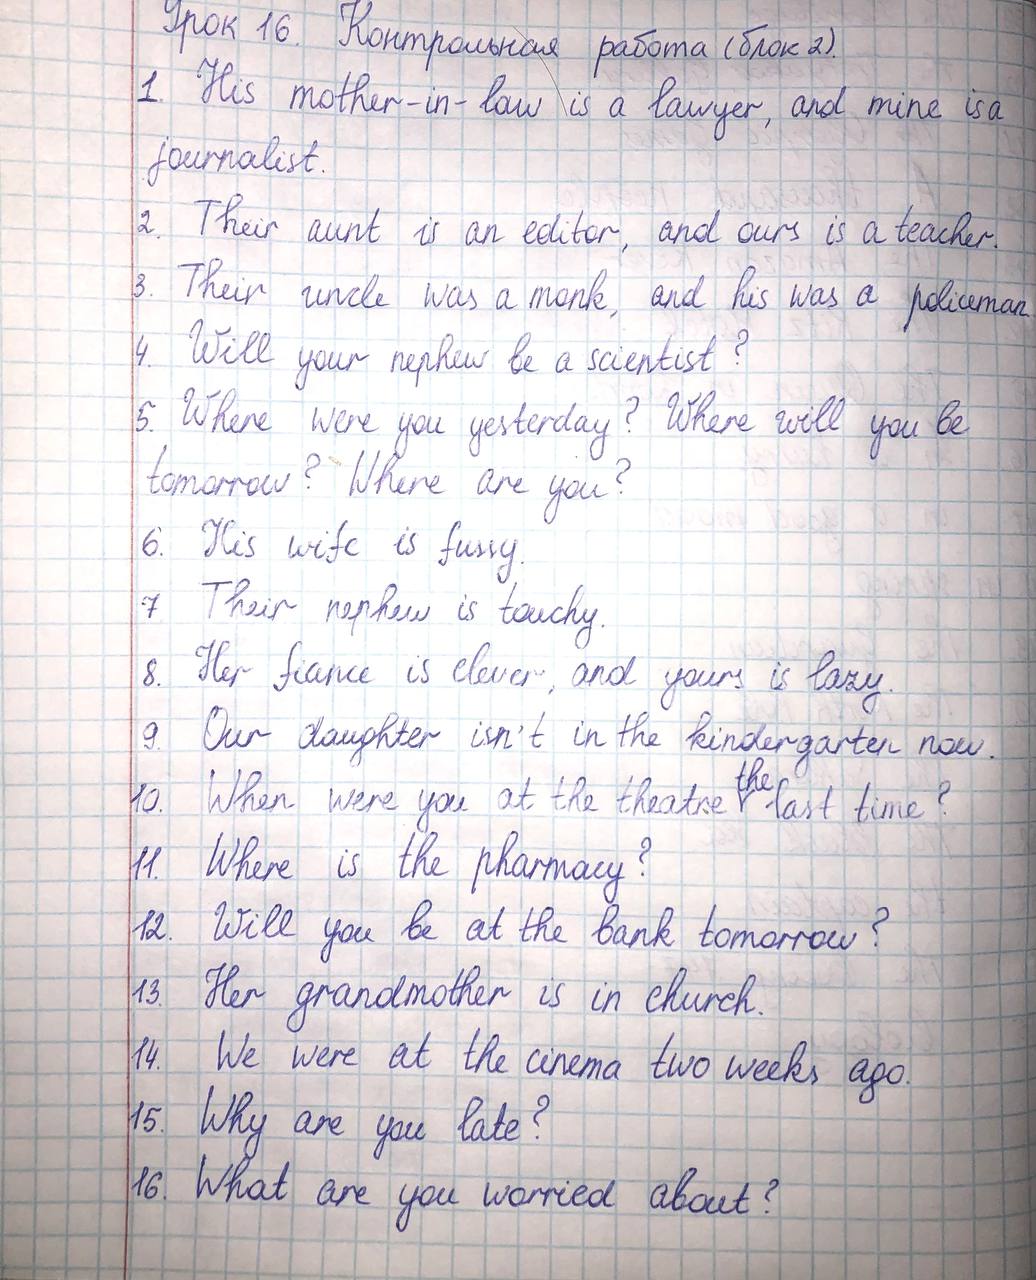 Урок 16. Контрольная работа (блок 2).
1. His mother-in-law is a lawyer, and mine is a
journalist.
2. Their aunt is an editor, and ours is a teacher.
3. Their uncle was a monk, and his was a policeman
4. Will your nephew be a scientist?
5. Where were you yesterday? Where will you be
tomorrow? Where are you?
6. His wife is fussy.
7 Their nephew is touchy.
8. Her fiance is clever, and yours is lazy.
9. Our daughter isn't in the kindergarten now.
10. When were you at the theatre the last time?
11. Where is the pharmacy?
12. Will you be at the bank tomorrow?
13. Her grandmother is in church.
14. We were at the cinema two weeks ago.
15. Why are you late?
16. What are you worried about?